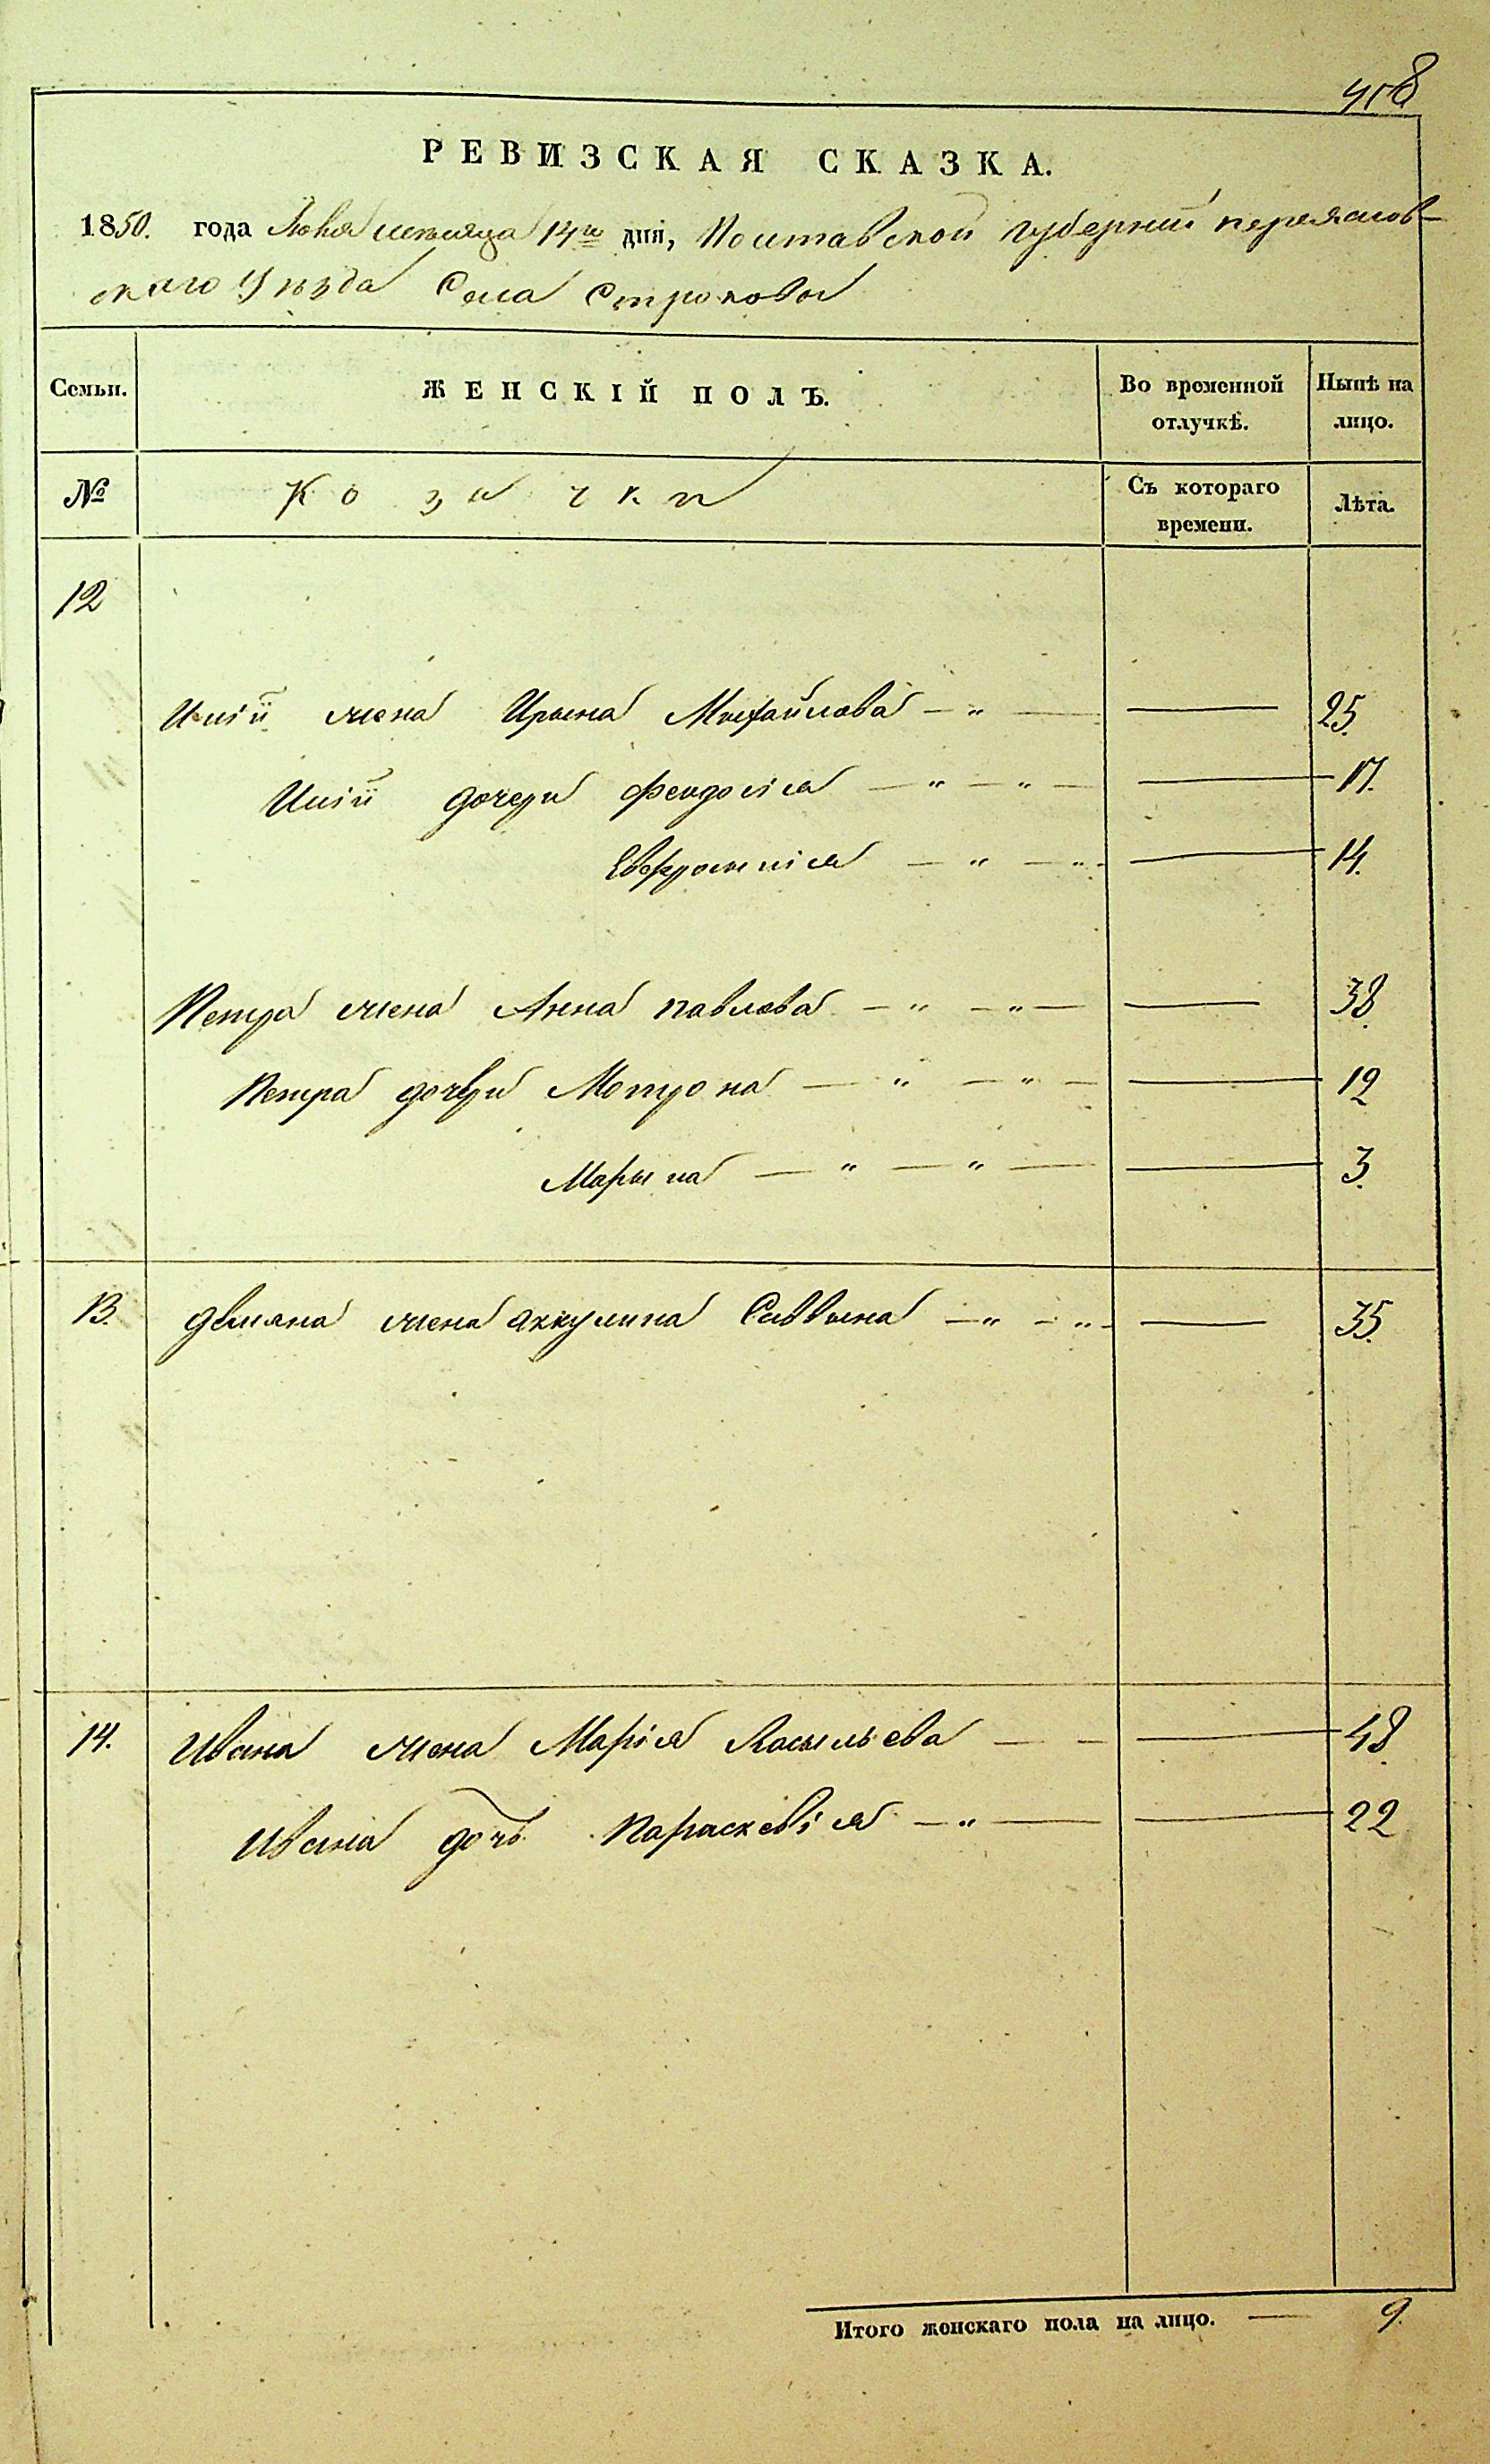 418
РЕВИЗСКАЯ СКАЗКА.
1850. года Июня месяца 14го дня, Полтавской губернии переяслов-
скаго Уѣзда Села Строковы
Семьи.
ЖЕНСКІЙ ПОЛЪ.
Во временной отлучкѣ.
Нынѣ на лицо.
№
Козачки
Съ котораго времени.
Лѣта.
12
жена Ирына Михайлова — „ — 25.
дочери Феодосія — „ — „ — 17.
Евфросинія — „ — „ — 14.
Петра жена Анна павлова — „ — „ — 38.
Петра дочери Мотрона — „ — „ — 12
Марына — „ — „ — 3.
13. демяна жена аккулина Саввына — „ — „ — 35.
14. Ивана жена Марія Васыльева — — 48.
Ивана дочь Параскевія — „ — 22
Итого женскаго пола на лицо. — 9.